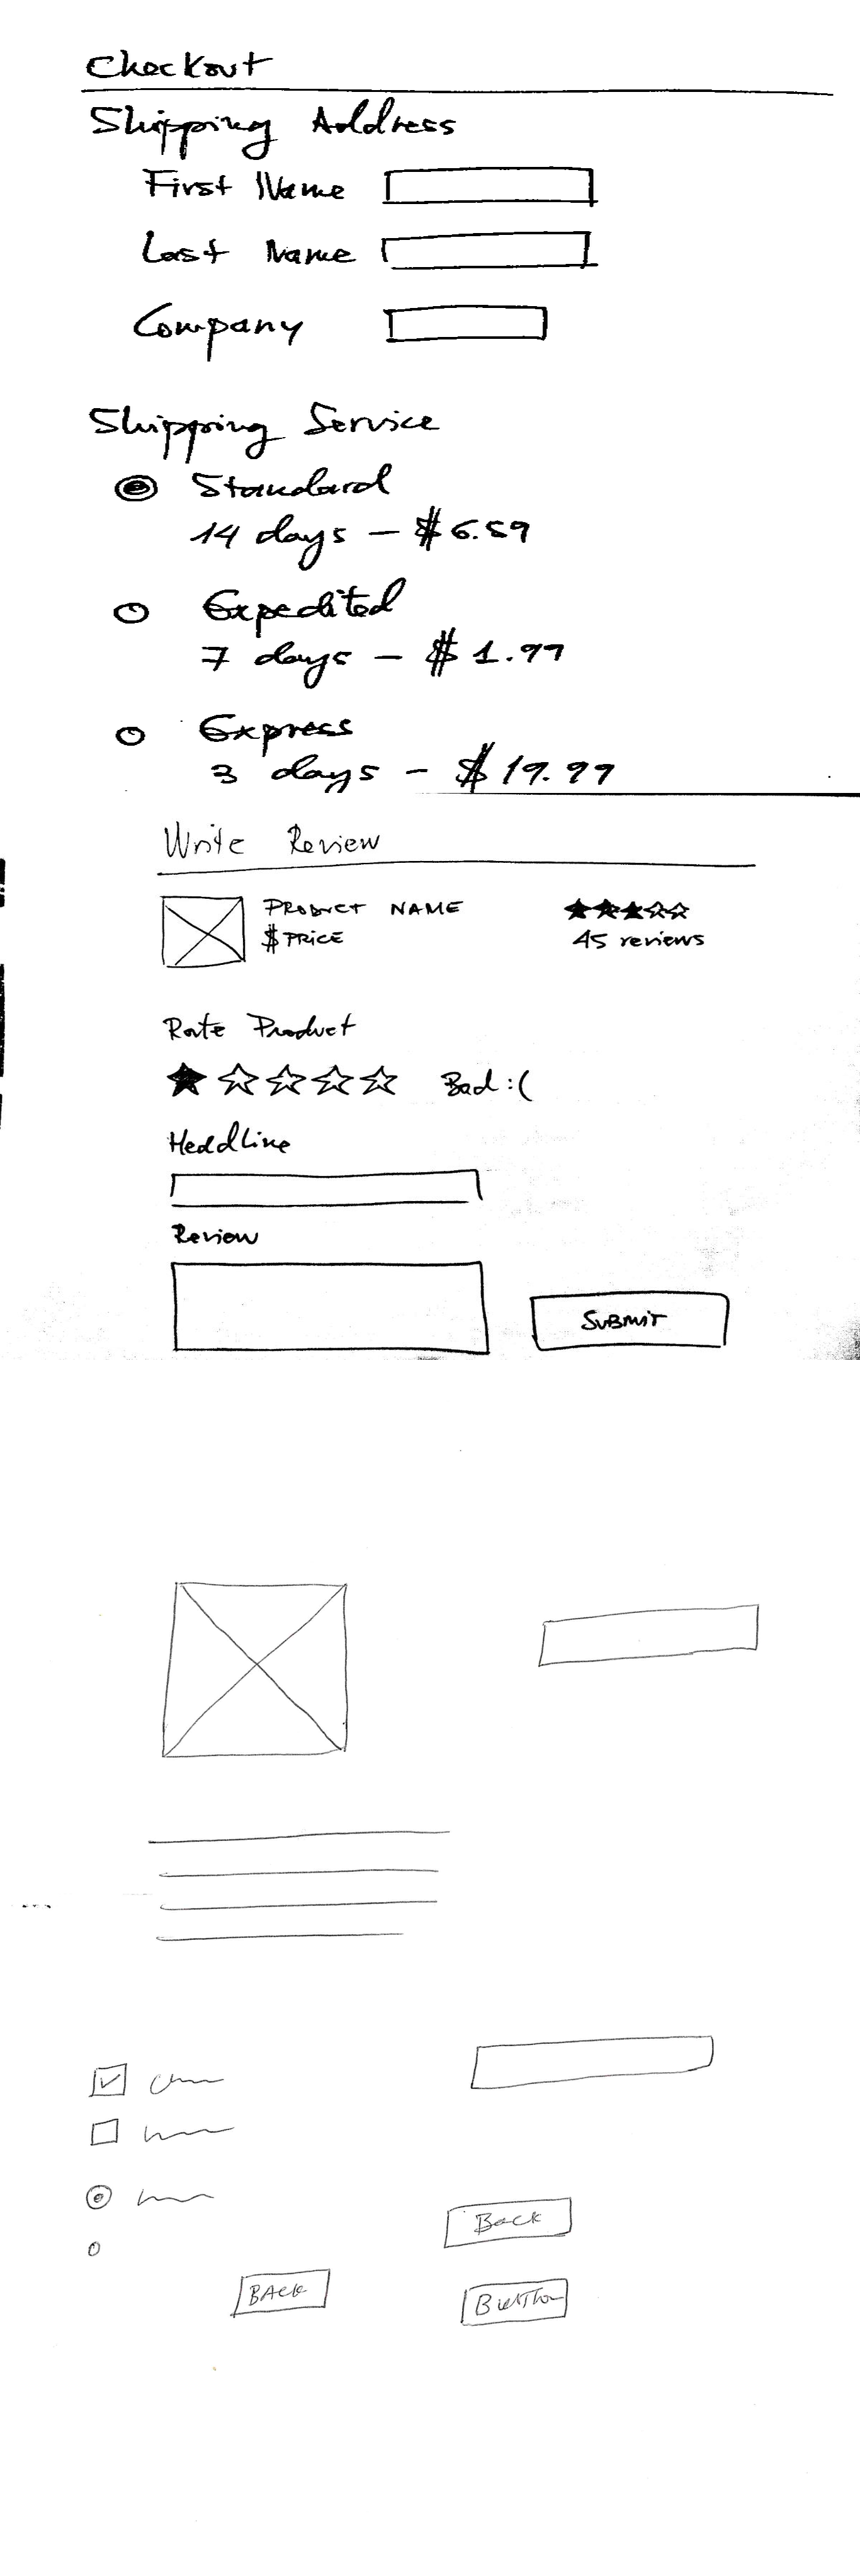 Checkout
Shipping Address
First Name
Last Name
Company
Shipping Service
Standard
14 days – $6.59
Expedited
7 days – $1.99
Express
3 days – $19.99
Write Review
PRODUCT NAME
$ PRICE
45 reviews
Rate Product
Bad :(
HeadLine
Review
SUBMIT
Back
BACK
BUTTon